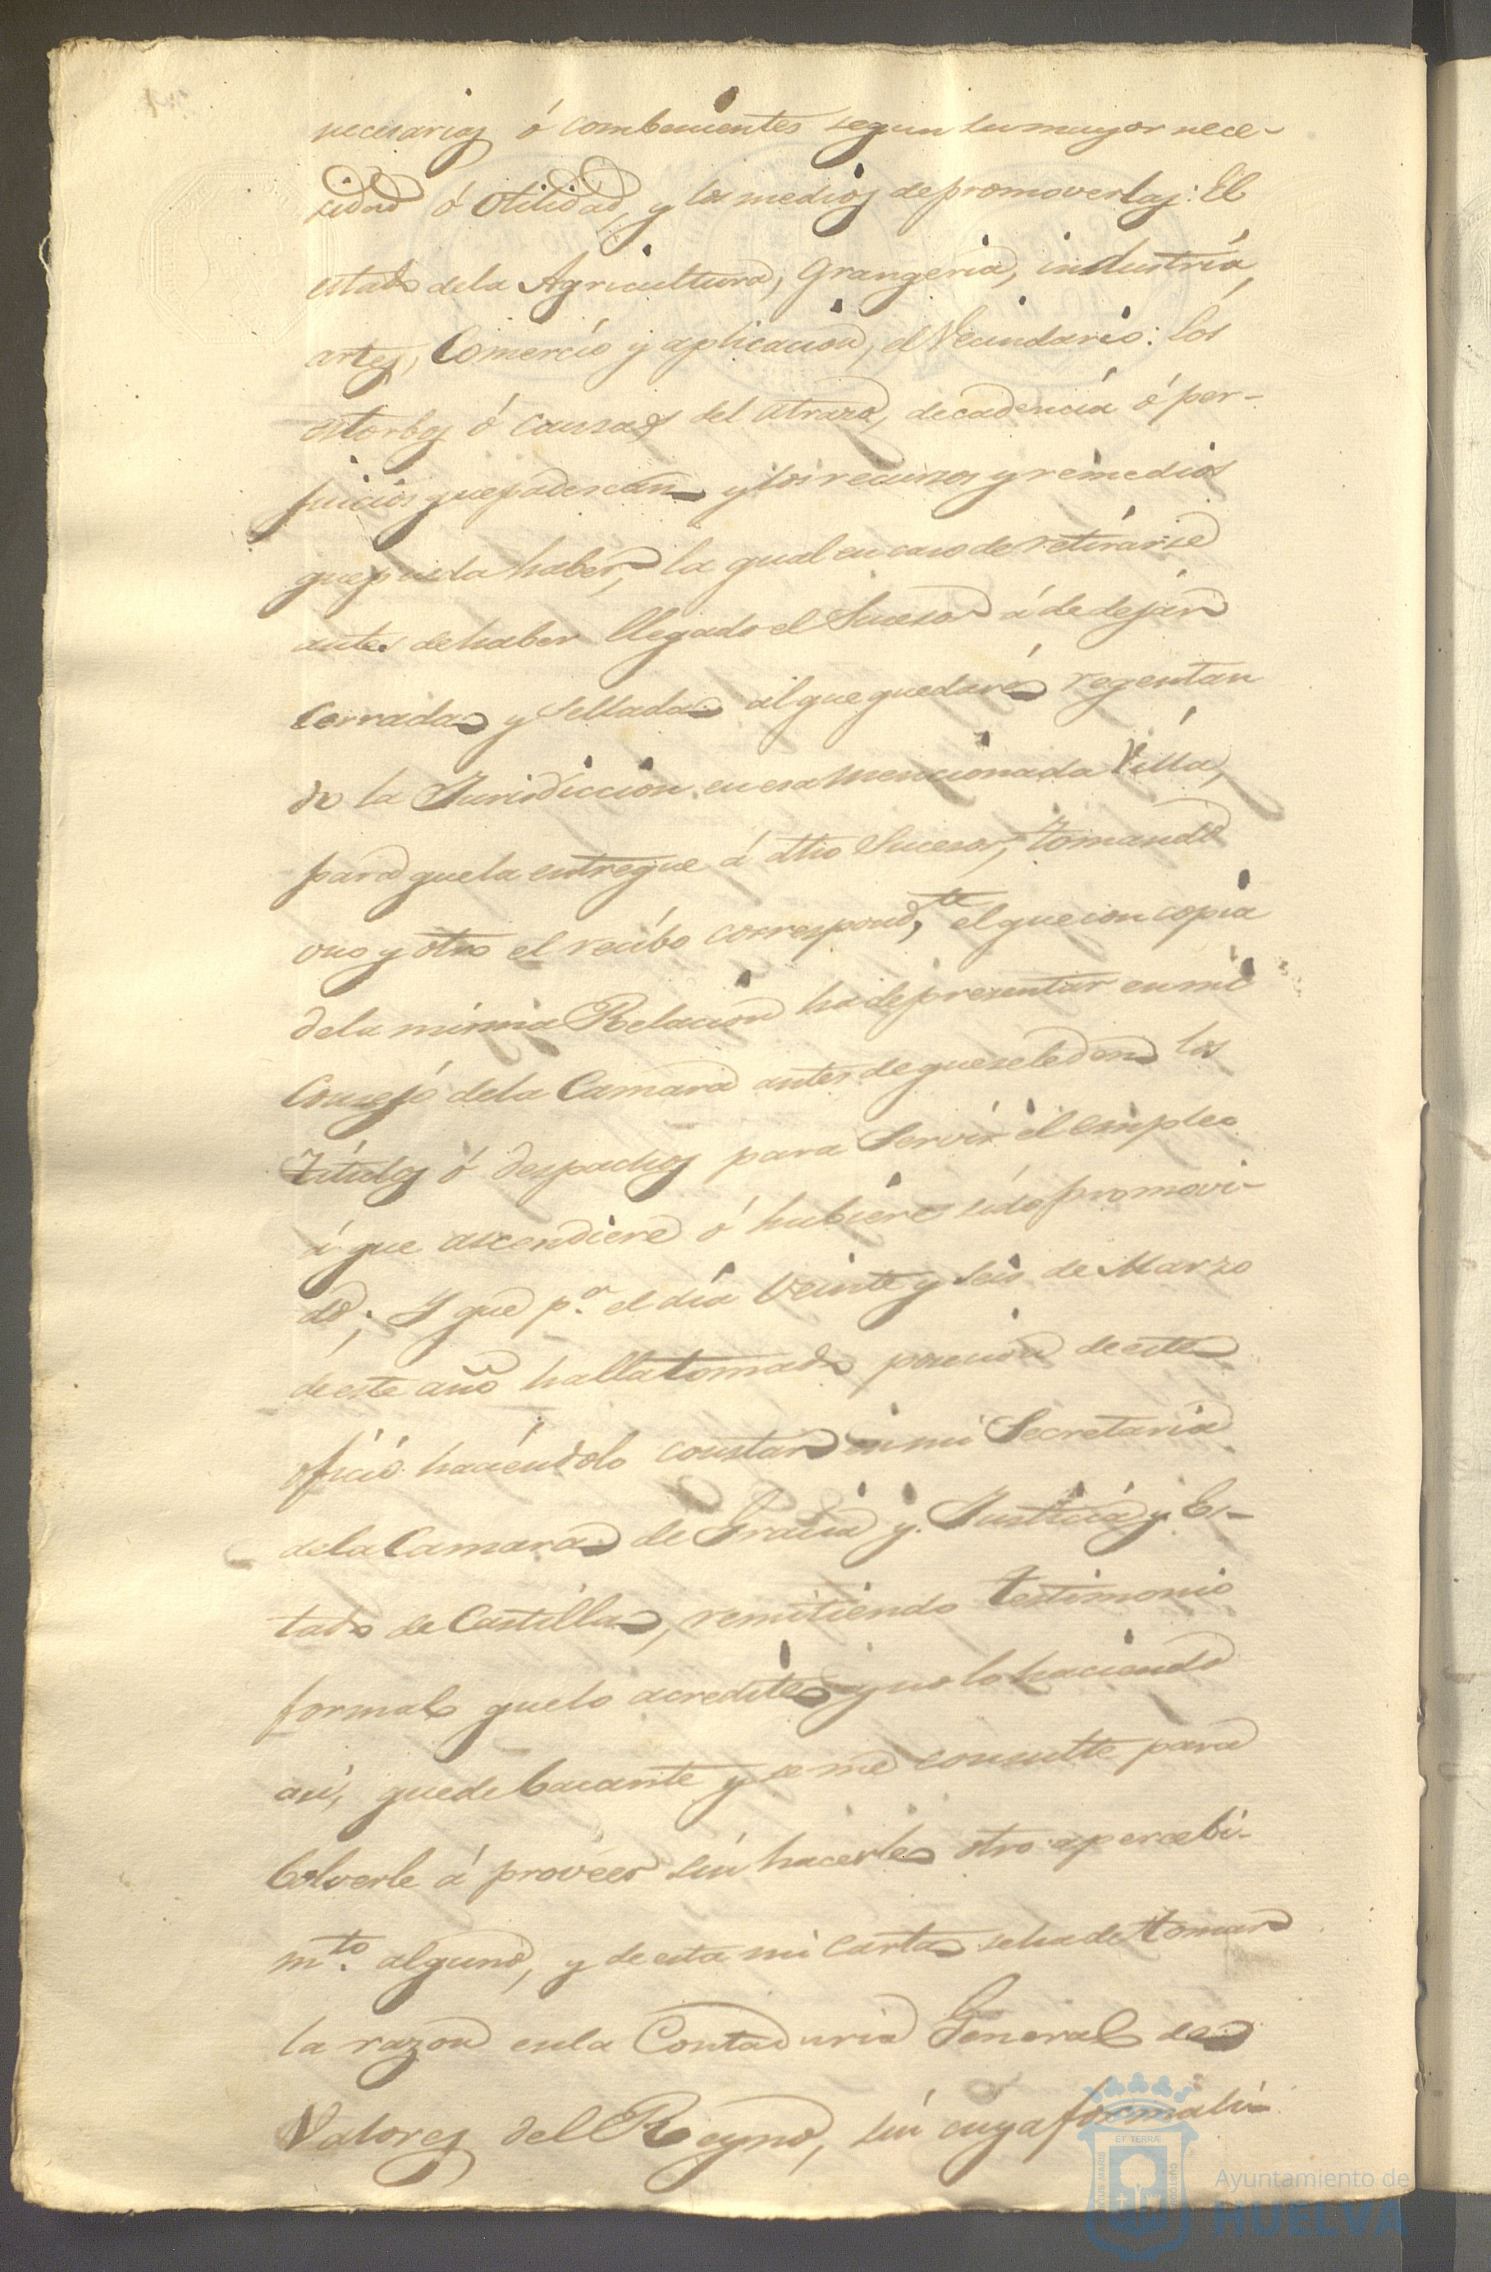 necesarias ó combenientes segun su mayor nece-
sidad ó Otilidad, y los medios de promoverlas: El
estado dela Agricultura, Grangeria, industria,
artes, Comercio y aplicacion, el Vecindario: Los
estorbos ó causas del atrazo, decadencia ó per-
juicios que padescan y los recursos y remedios
que pueda haber, la qual en caso de retirarse
antes de haber llegado el Sucesor á de dejar
Cerrada y Sellada al que quedare regentan
do la Jurisdiccion en esa mencionada Villa,
para que la entregue á dho Sucesor, tomando
uno y otro el recibo correspond.te el que con copia
dela misma Relacion ha de presentar en mi
Consejo dela Camara antes de que se le den los
Titulos ó despachos para Servir el empleo
á que ascendiere ó hubiere sido promovi-
do; Y que p.a el dia Veinte y seis de Marzo
de este año halla tomado posecion de este
oficio haciendolo constar en mi Secretaria
dela Camara de Gracia y Justicia y Es-
tado de Castilla, remitiendo testimonio
formal que lo acredite y no lo haciendo
asi, quede bacante y se me consulte para
bolverle á proveer sin hacerle otro apercebi-
m.to alguno, y de esta mi Carta se ha de tomar
la razon en la Contaduria General de
Valores del Reyno, sin cuya formali-
ET TERRÆ
Ayuntamiento de
HUELVA